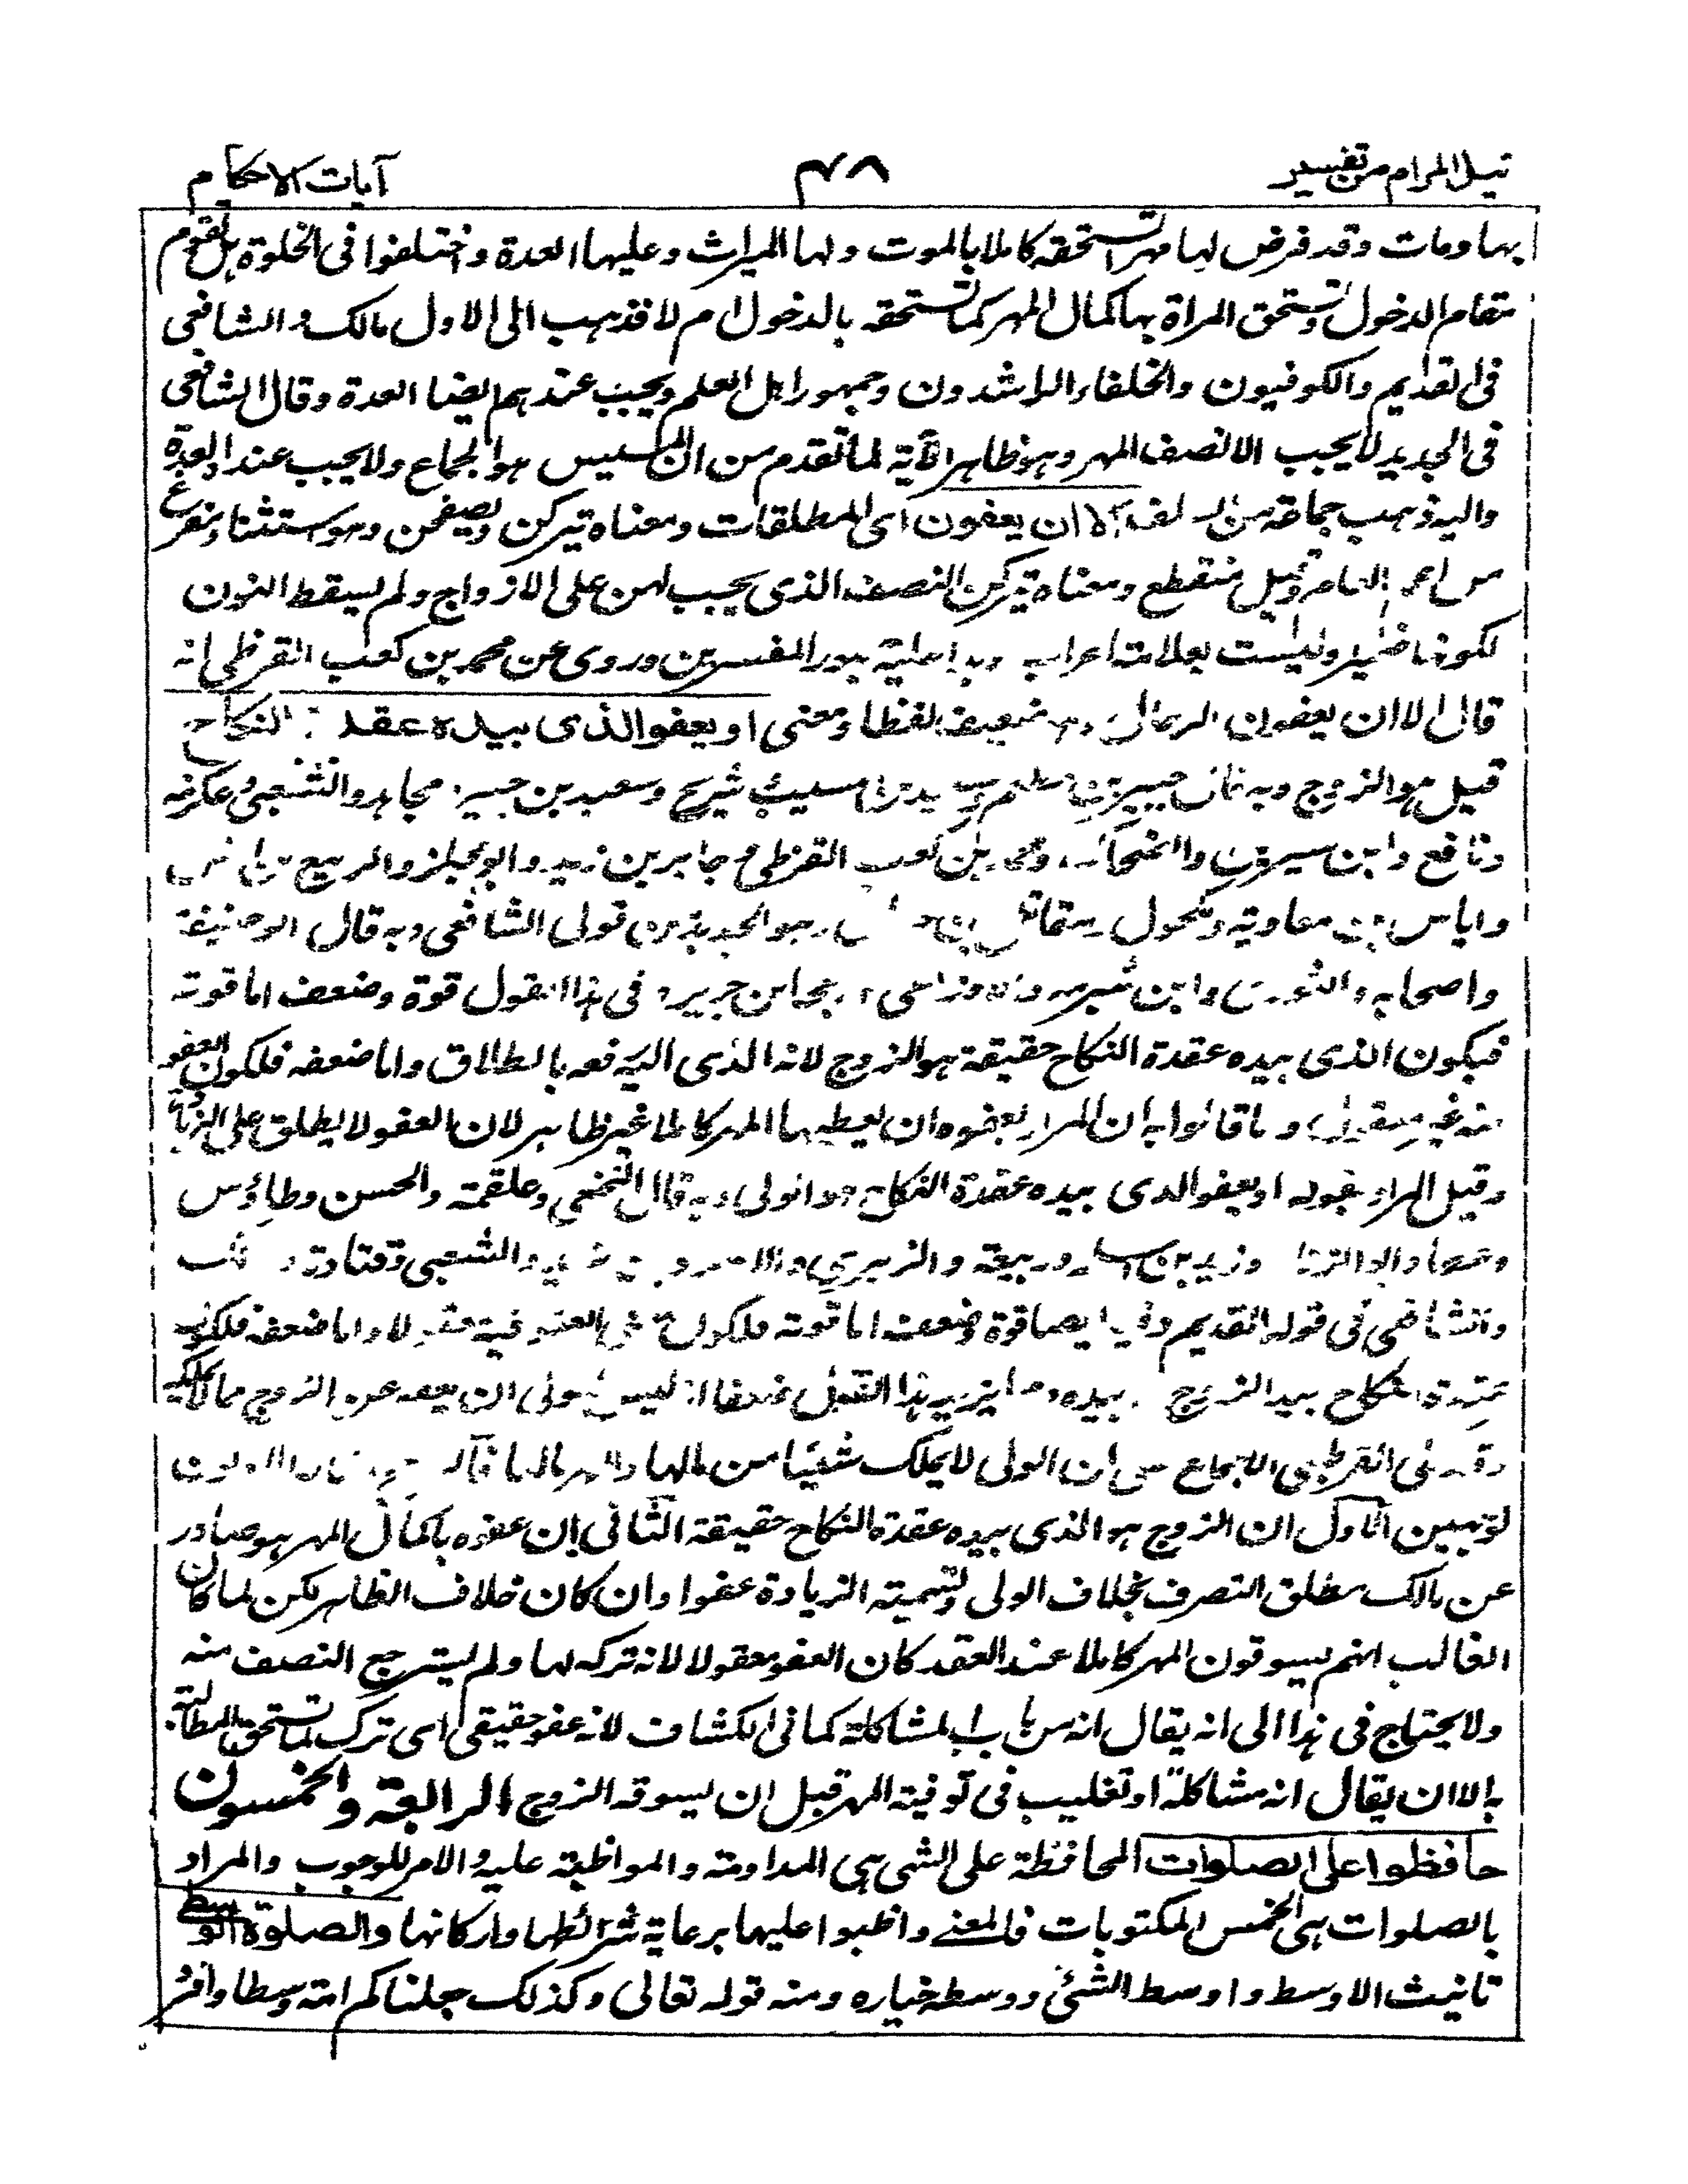 نيل المرام من تفسير ٤٨ آيات الاحكام
بها ومات وقد فرض لها مهرا تستحقه كاملا بالموت ولها الميراث وعليها العدة واختلفوا فى الخلوة هل تقوم
مقام الدخول وتستحق المراة بها كمال المهر كما تستحقه بالدخول ام لا فذهب الى الاول مالك والشافعى
فى القديم والكوفيون والخلفاء الراشدون وجمهور اهل العلم ويجب عندهم ايضا العدة وقال الشافعى
فى الجديد لا يجب الا نصف المهر وهو ظاهر الآية لما تقدم من ان المسيس هو الجماع ولا يجب عنده العدة
واليه ذهب جماعة من السلف الا ان يعفون اى المطلقات ومعناه يتركن ويصفحن وهو استثناء مفرغ
من اعم العام وقيل منقطع ومعناه يتركن النصف الذى يجب لهن على الازواج ولم يسقط النون
لكونها ضمير وليست بعلامة اعراب وبذا عليه جمهور المفسرين وروى عن محمد بن كعب القرظى انه
قال الا ان يعفون الرجال وهو ضعيف لفظا ومعنى او يعفو الذى بيده عقدة النكاح
قيل هو الزوج وبه قال جبير بن مطعم وسعيد بن المسيب وشريح وسعيد بن جبير ومجاهد والشعبى وعكرمة
ونافع وابن سيرين والضحاك ومحمد بن كعب القرظى وجابر بن زيد وابو مجلز والربيع بن انس
واياس بن معاوية ومكحول ومقاتل بن حيان وهو الجديد من قولى الشافعى وبه قال ابو حنيفة
واصحابه والثورى وابن شبرمة والاوزاعى ورجحه ابن جرير وفى هذا القول قوة وضعف اما قوته
فيكون الذى بيده عقدة النكاح حقيقة هو الزوج لانه الذى اليه رفعه بالطلاق واما ضعفه فلكون العفو
منه غير معقول وما قالوا به ان المراد بعفوه ان يعطيها المهر كاملا غير ظاهر لان العفو لا يطلق على الزيادة
وقيل المراد بقوله او يعفو الذى بيده عقدة النكاح هو الولى وبه قال النخعى وعلقمة والحسن وطاؤس
وعطاء وابو الزناد وزيد بن اسلم وربيعة والزهرى والاسود بن يزيد والشعبى وقتادة ومالك
والشافعى فى قوله القديم وفيه ايضا قوة وضعف اما قوته فلكون معنى العفو فيه معقولا واما ضعفه فلكون
عقدة النكاح بيد الزوج لا بيده ومما يزيد هذا القول ضعفا انه ليس للولى ان يعفو عن الزوج مما لا يملكه
وقد حكى القرطبى الاجماع على ان الولى لا يملك شيئا من مالها والمهر مالها فالراجح ما قاله الاولون
لوجهين الاول ان الزوج هو الذى بيده عقدة النكاح حقيقة الثانى ان عفوه باكمال المهر هو صادر
عن مالك مطلق التصرف بخلاف الولى وتسمية الزيادة عفوا وان كان خلاف الظاهر لكن لما كان
الغالب انهم يسوقون المهر كاملا عند العقد كان العفو معقولا لانه تركه لها ولم يسترجع النصف منه
ولا يحتاج فى هذا الى انه يقال انه من باب المشاكلة كما فى الكشاف لانه عفو حقيقى اى ترك ما تستحق المطالبة
به الا ان يقال انه مشاكلة او تغليب فى توفية المهر قبل ان يسوقه الزوج الرابعة والخمسون
حافظوا على الصلوات المحافظة على الشى هى المداومة والمواظبة عليه والامر للوجوب والمراد
بالصلوات هى الخمس المكتوبات فالمعنے واظبوا عليها برعاية شرائطها واركانها والصلوة الوسطے
تانيث الاوسط واوسط الشئ ووسطه خياره ومنه قوله تعالى وكذلك جعلناكم امة وسطا وافرد